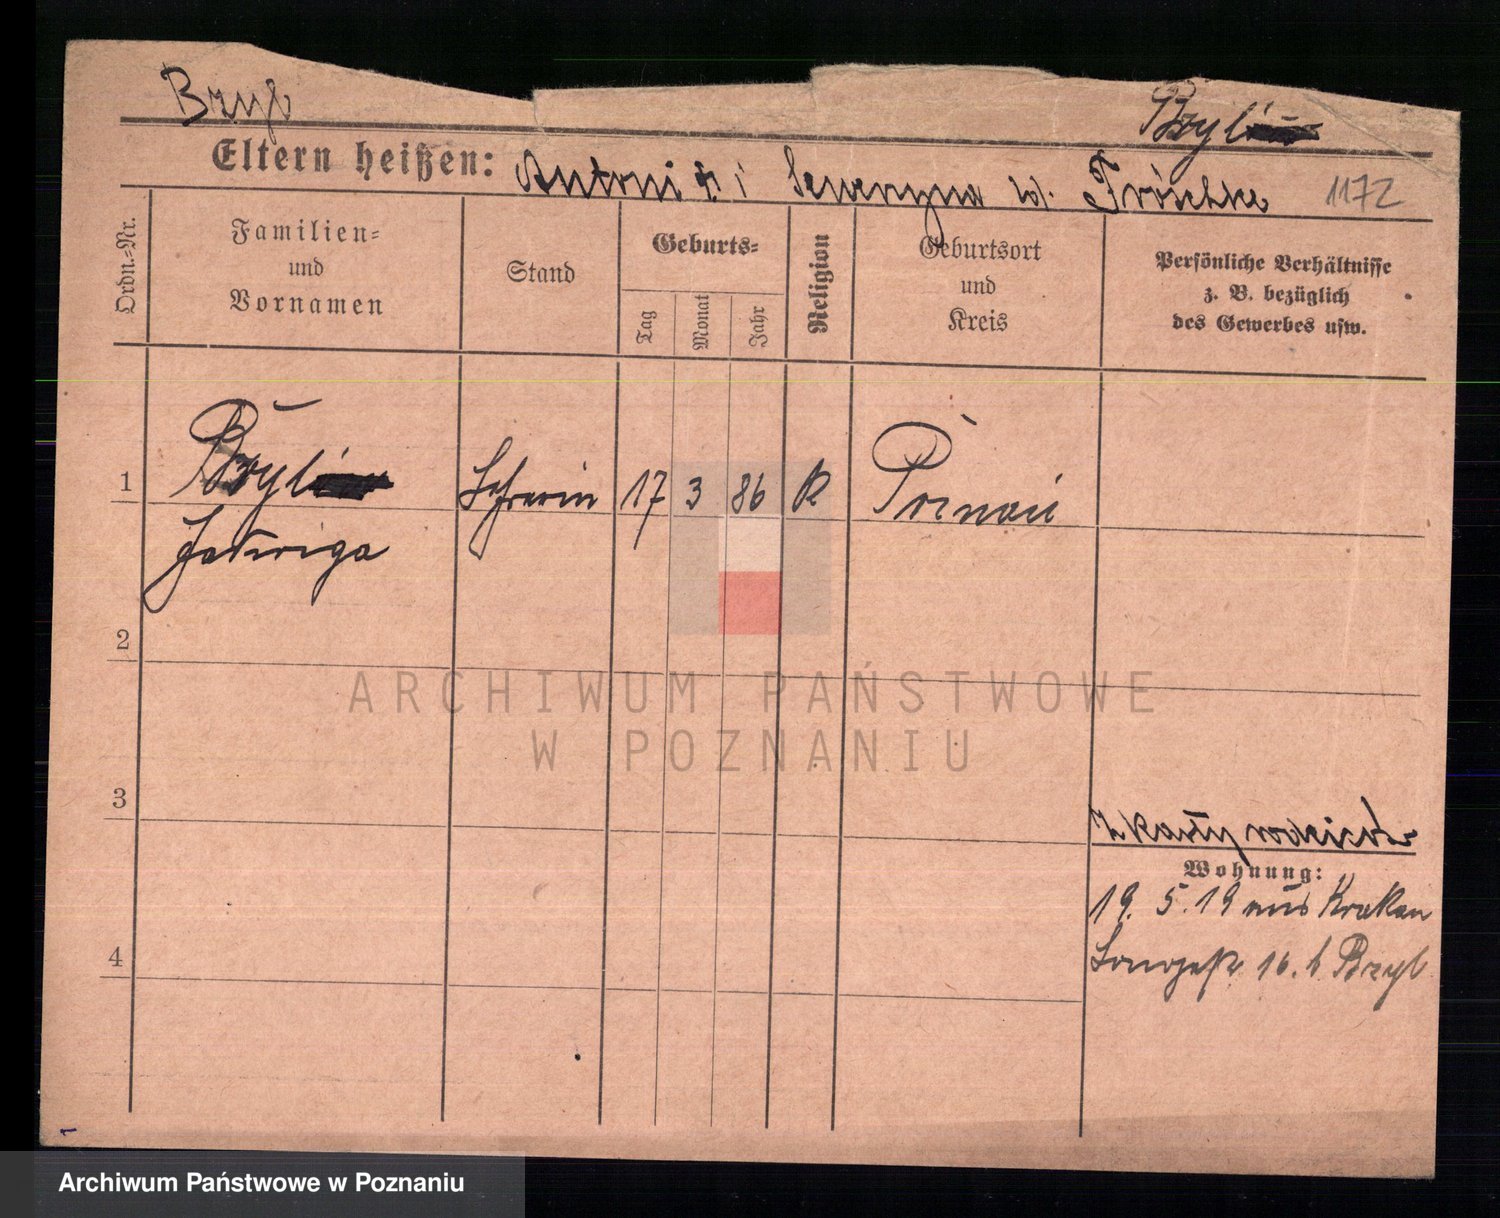 Bzyl
Bzyl
Eltern heißen: Antoni i Seweryna Fröschke 1172
Ordn.-Nr.
Familien-
und
Vornamen
Stand
Geburts-
Tag
Monat
Jahr
Religion
Geburtsort
und
Kreis
Persönliche Verhältnisse
z. B. bezüglich
des Gewerbes usw.
1 Bzyl 17 3 86 k Poznań
Jadwiga
2
ARCHIWUM PAŃSTWOWE
W POZNANIU
3
Z karty rodziców
Wohnung:
19. 5. 19 aus Krakau
16. b Bzyl
4
Archiwum Państwowe w Poznaniu